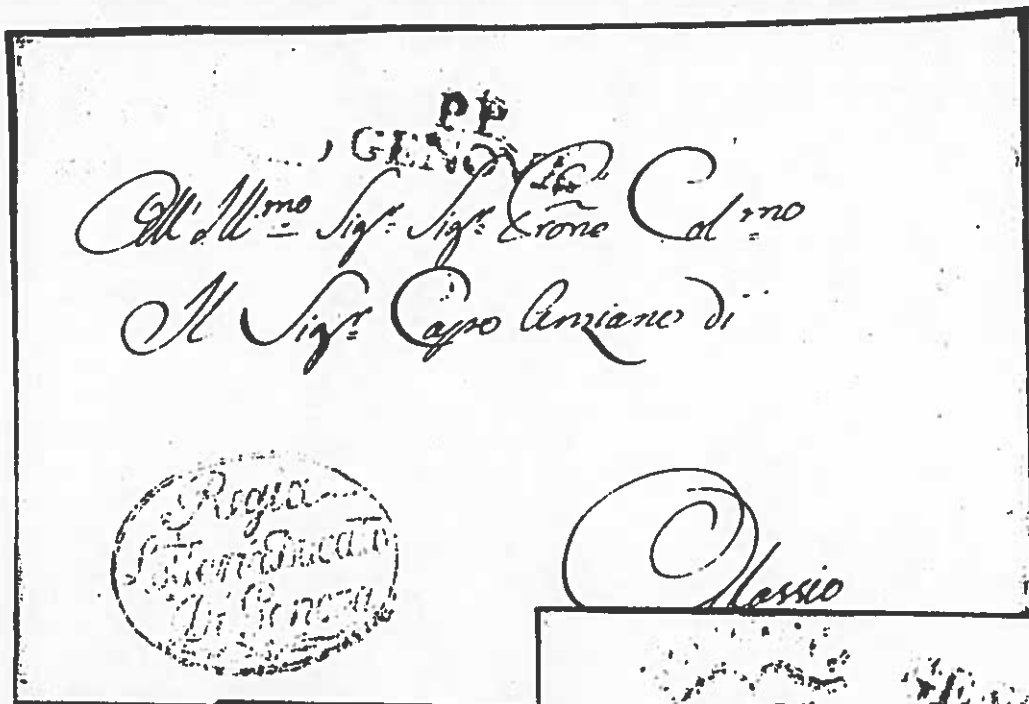 P P
GENOVA
All' Ill.mo Sig.r Sig.r Prōne Col.mo
Il Sig.r Capo Anziano di
Regia
Lotteria Ducato
di Genova
Alassio